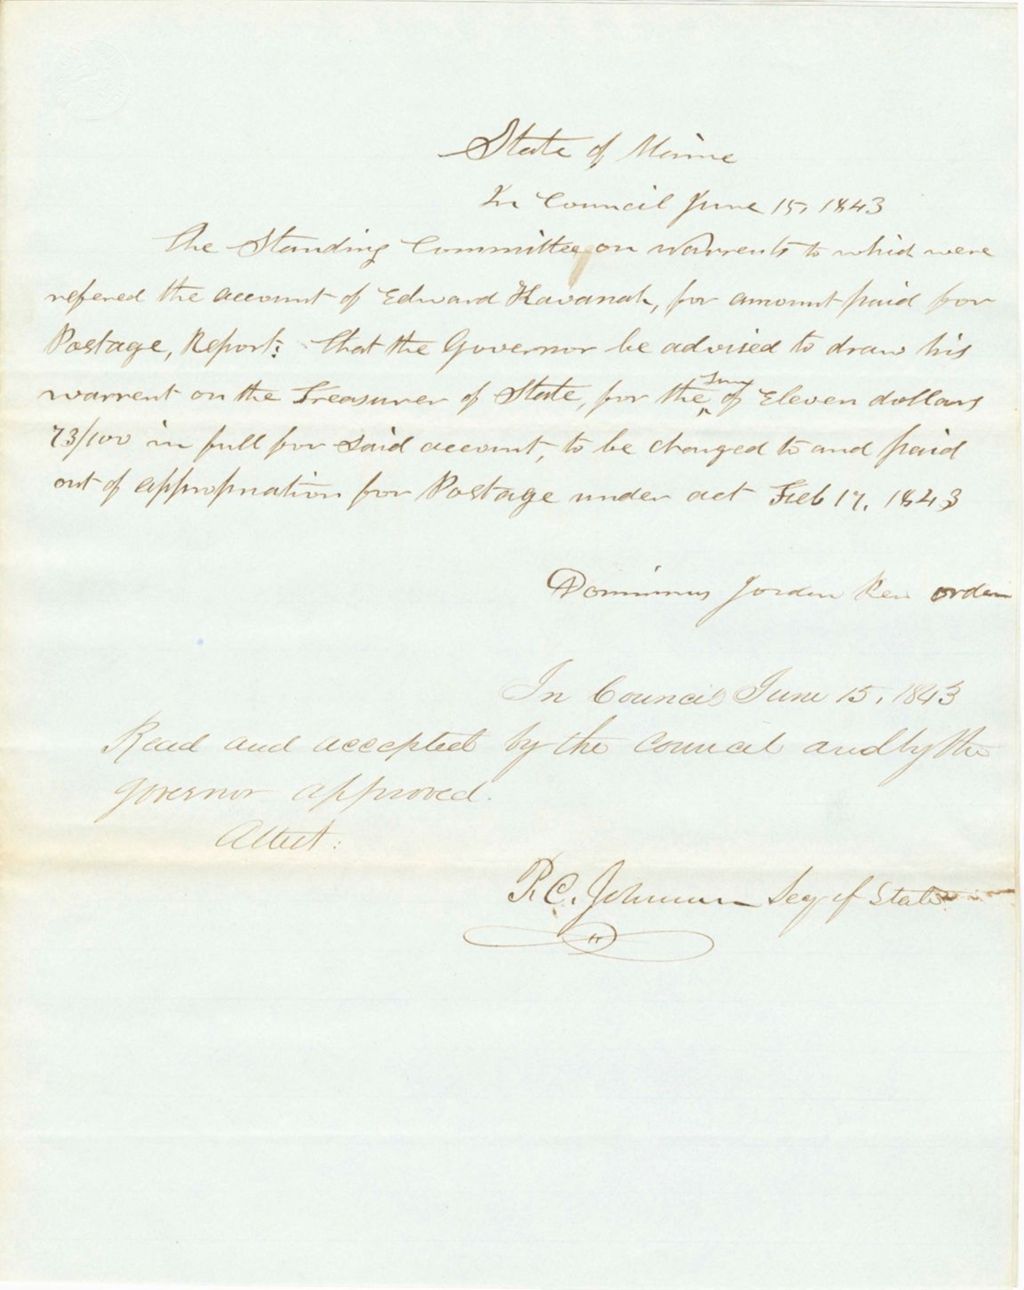 State of Maine
In Council June 15, 1843
The Standing Committee on warrents to which were
refered the account of Edward Kavanah, for amount paid for
Postage, Report: that the Governor be advised to draw his
warrent on the Treasurer of State, for the sum of Eleven dollars
73/100 in full for said account, to be charged to and paid
out of appropriation for Postage under act Feb 17, 1843
Dominicus Jordan Per order
In Council June 15, 1843
Read and accepted by the Council and by the
Governor approved.
Attest:
P. C. Johnson Secy of State